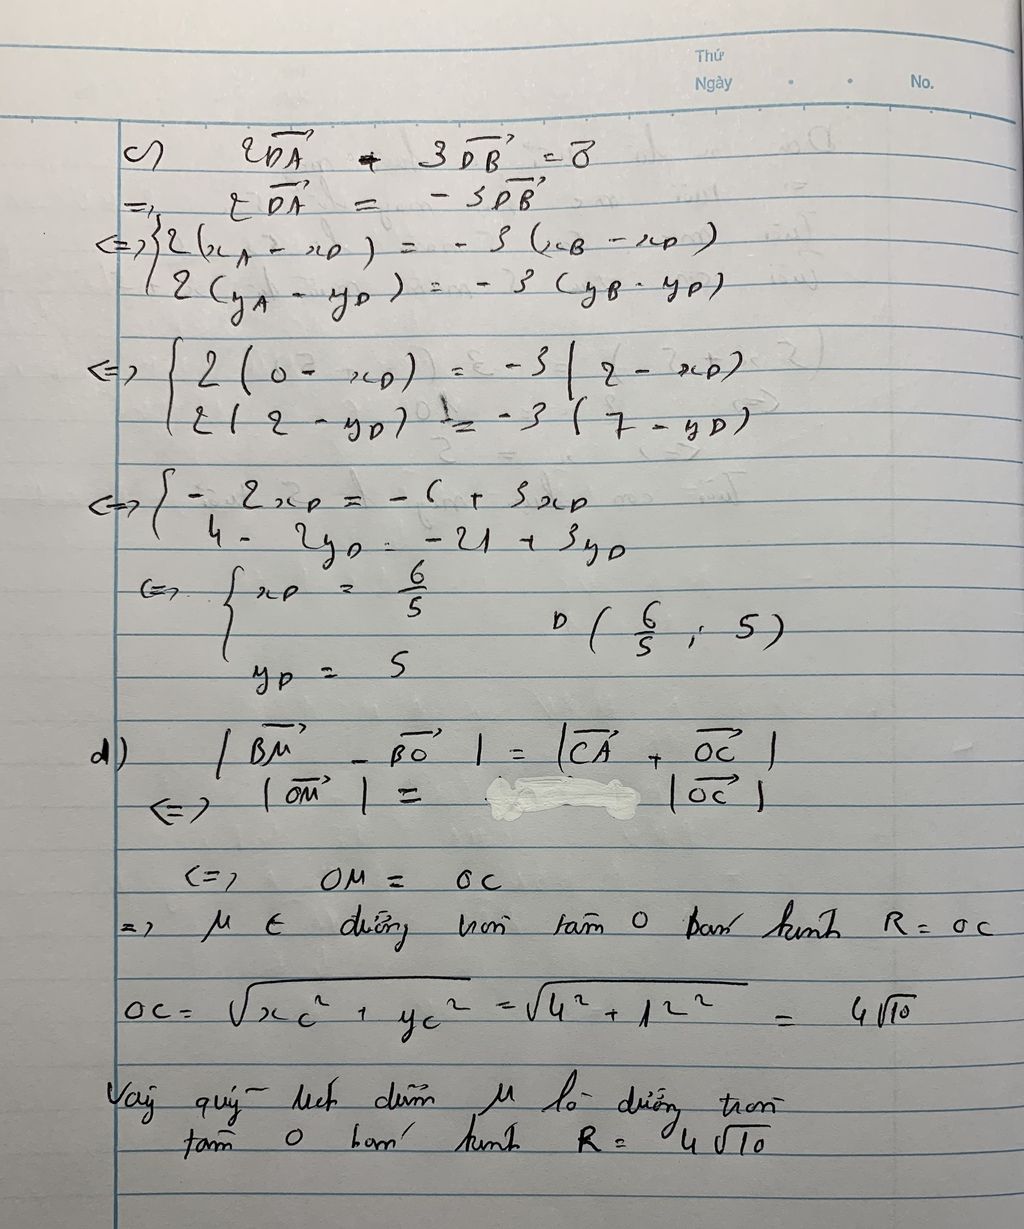 Thứ
Ngày . . No.
c) 2DA + 3DB = 0
=> 2DA = -3DB
<=> { 2(xA - xD) = -3(xB - xD)
2(yA - yD) = -3(yB - yD)
<=> { 2(0 - xD) = -3(2 - xD)
2(2 - yD) = -3(7 - yD)
<=> { -2xD = -6 + 3xD
4 - 2yD = -21 + 3yD
<=> { xD = 6/5
D (6/5 ; 5)
yD = 5
d) |BM - BO| = |CA + OC|
<=> |OM| = |OC|
<=> OM = OC
=> M ∈ đường tròn tâm O bán kính R = OC
OC = √(xC² + yC²) = √(4² + 12²) = 4√10
Vậy quỹ tích điểm M là đường tròn
tâm O bán kính R = 4√10